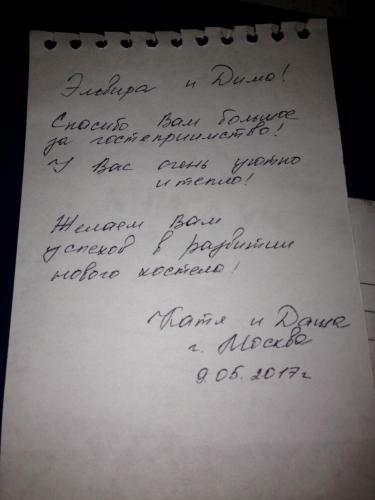 Эльвира и Дима!
Спасибо Вам большое
за гостеприимство!
У Вас очень уютно
и тепло!
Желаем Вам
успехов в развитии
нового хостела!
Катя и Даша
г. Москва
9.05.2017г